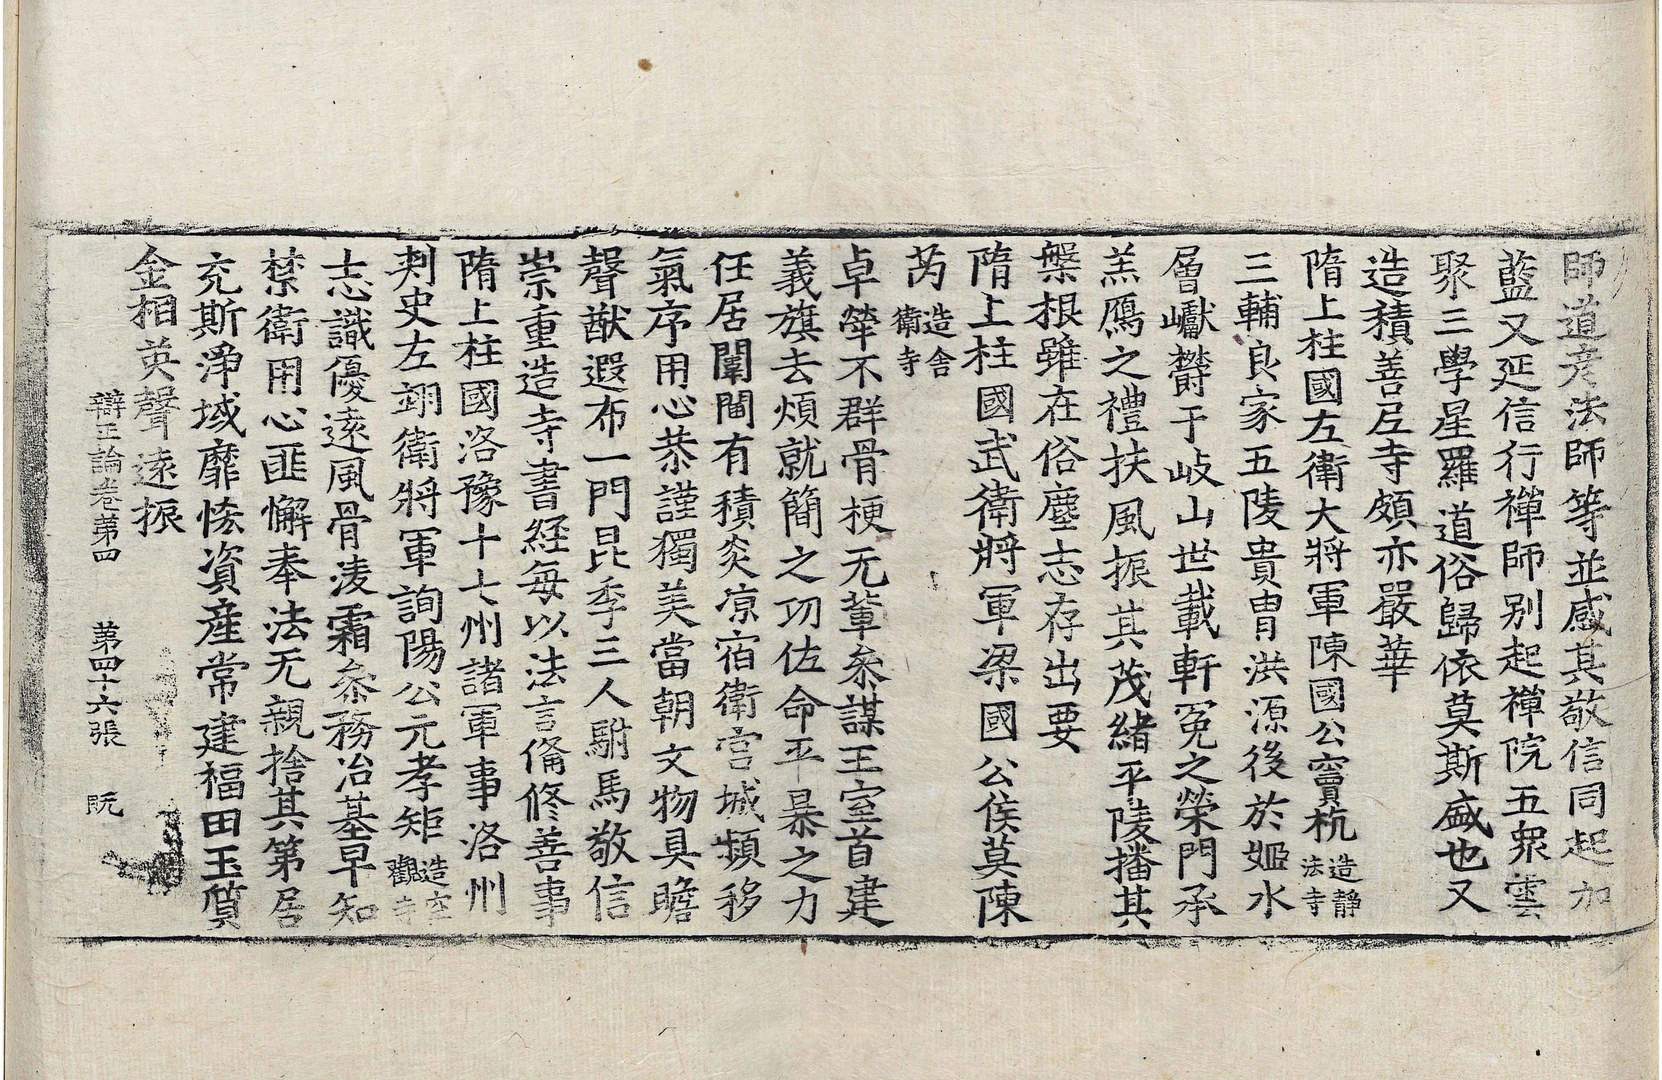 師道彦法師等並感其敬信同起加
藍又延信行禪師别起禪院五衆雲
聚三學星羅道俗歸依莫斯盛也又
造積善尼寺頗亦嚴華
隋上柱國左衛大將軍陳國公竇杭造靜法寺
三輔良家五陵貴胄洪源後於姬水
層巘欝于岐山世載軒冕之榮門承
羔鴈之禮扶風振其茂緒平陵播其
槃根雖在俗塵志存出要
隋上柱國武衛將軍梁國公侯莫陳
芮造舍衛寺
卓犖不群骨梗无輩叅謀王室首建
義旗去煩就簡之功佐命平暴之力
任居闈閫有積炎凉宿衛宫城頻移
氣序用心恭謹獨美當朝文物具瞻
聲猷遐布一門昆季三人駙馬敬信
崇重造寺書經每以法言俻修善事
隋上柱國洛豫十七州諸軍事洛州
刾史左翊衛將軍詢陽公元孝矩造空觀寺
志識優遠風骨淩霜叅務冶基早知
禁衛用心匪懈奉法无親捨其第居
充斯淨域靡恡資産常建福田玉質
金相英聲遠振
辯正論卷第四 第四十六張 既